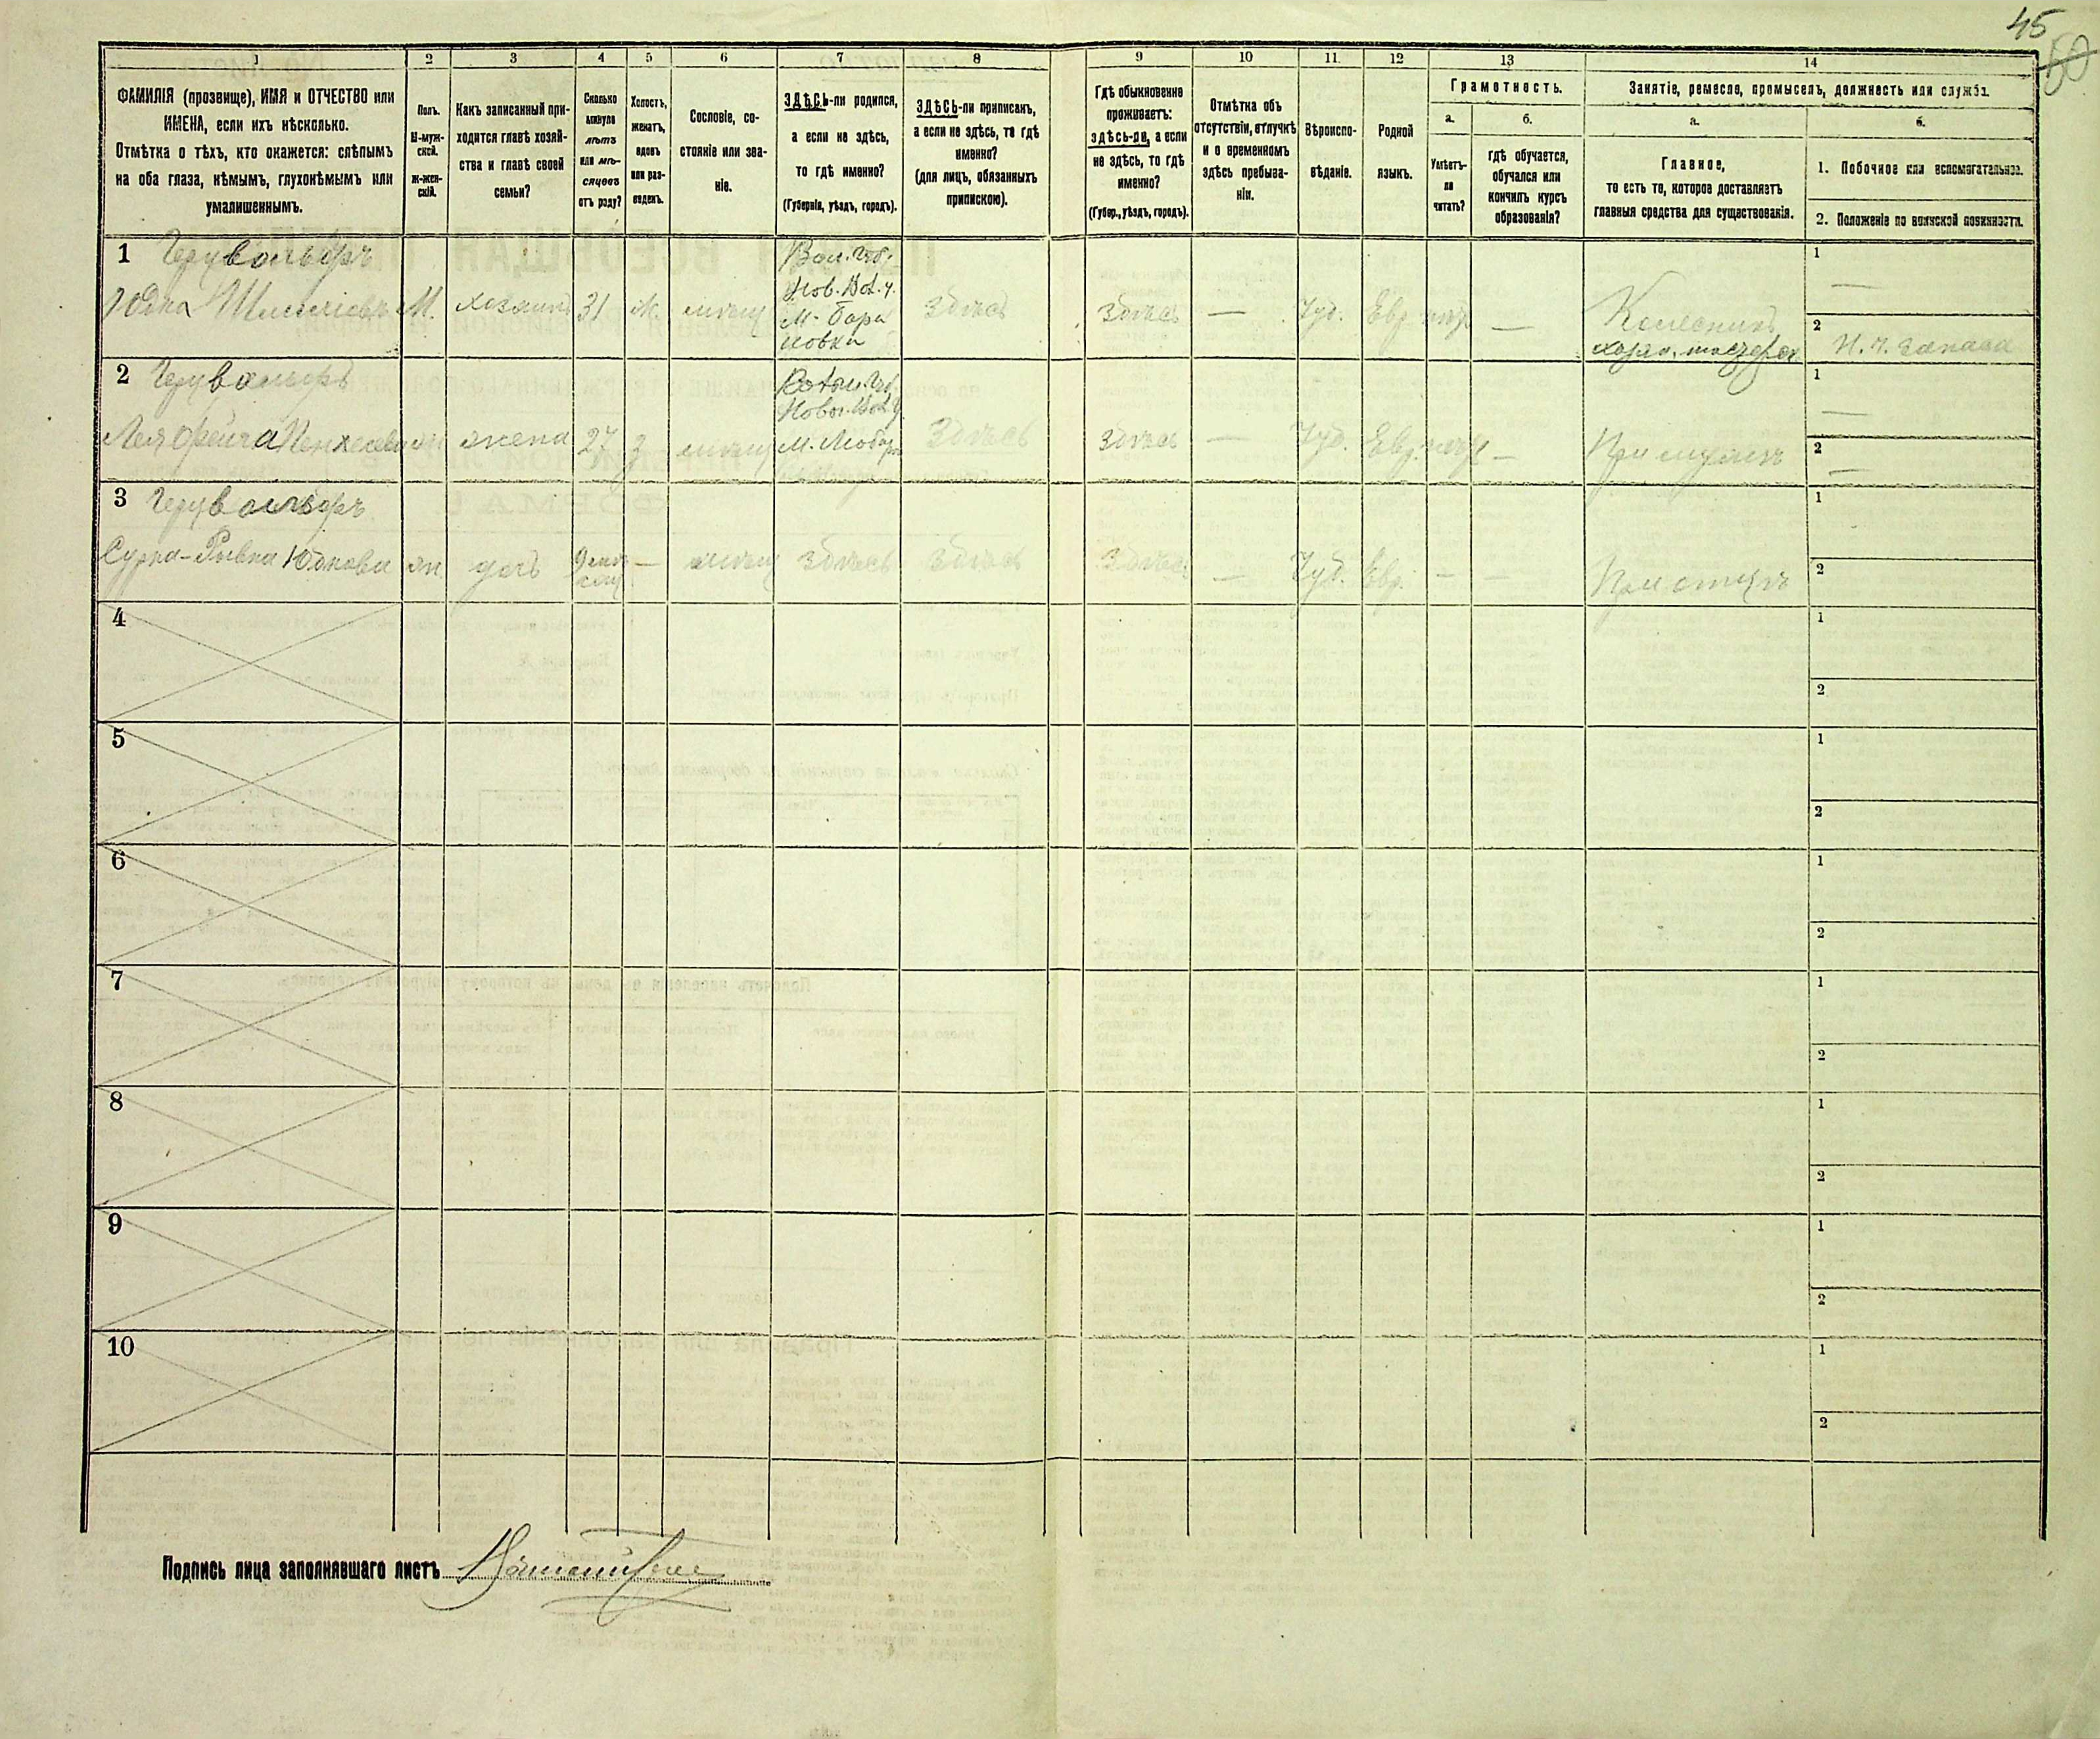 45
50
1
2
3
4
5
6
7
8
9
10
11.
12
13
14
ФАМИЛІЯ (прозвище), ИМЯ и ОТЧЕСТВО или
ИМЕНА, если ихъ нѣсколько.
Отмѣтка о тѣхъ, кто окажется: слѣпымъ
на оба глаза, нѣмымъ, глухонѣмымъ или
умалишеннымъ.
Полъ.
М-муж-
ской.
ж-жен-
скій.
Какъ записанный при-
ходится главѣ хозяй-
ства и главѣ своей
семьи?
Сколько
минуло
лѣтъ
или мѣ-
сяцевъ
отъ роду?
Холостъ,
женатъ,
вдовъ
или раз-
веденъ.
Сословіе, со-
стояніе или зва-
ніе.
ЗДѢСЬ-ли родился,
а если не здѣсь,
то гдѣ именно?
(Губернія, уѣздъ, городъ).
ЗДѢСЬ-ли приписанъ,
а если не здѣсь, то гдѣ
именно?
(для лицъ, обязанныхъ
припискою).
Гдѣ обыкновенно
проживаетъ:
здѣсь-ли, а если
не здѣсь, то гдѣ
именно?
(Губер., уѣздъ, городъ).
Отмѣтка объ
отсутствіи, отлучкѣ
и о временномъ
здѣсь пребыва-
ніи.
Вѣроиспо-
вѣданіе.
Родной
языкъ.
Грамотность.
а.
Умѣетъ-
ли
читать?
б.
гдѣ обучается,
обучался или
кончилъ курсъ
образованія?
Занятіе, ремесло, промыселъ, должность или служба.
а.
Главное,
то есть то, которое доставляетъ
главныя средства для существованія.
б.
1. Побочное или вспомогательное.
2. Положеніе по воинской повинности.
1
Юдка М. хозяинъ 31 Ж. мѣщ
Вол. Губ.
Нов. Вол. у.
М. Бара
новка
здѣсь здѣсь — Іуд. Евр —
Колесникъ
1
—
2 Н. Ч. запаса
2
Лея жена 27 З мѣщ
М. Любар
здѣсь здѣсь — Іуд. Евр. —
При мужѣ
1
—
2
—
3
Сурка-Рывка Юдкова жн дочь — мѣщ здѣсь здѣсь здѣсь — Іуд. Евр. — —
При отцѣ
1
2
4
1
2
5
1
2
6
1
2
7
1
2
8
1
2
9
1
2
10
1
2
Подпись лица заполнявшаго листъ